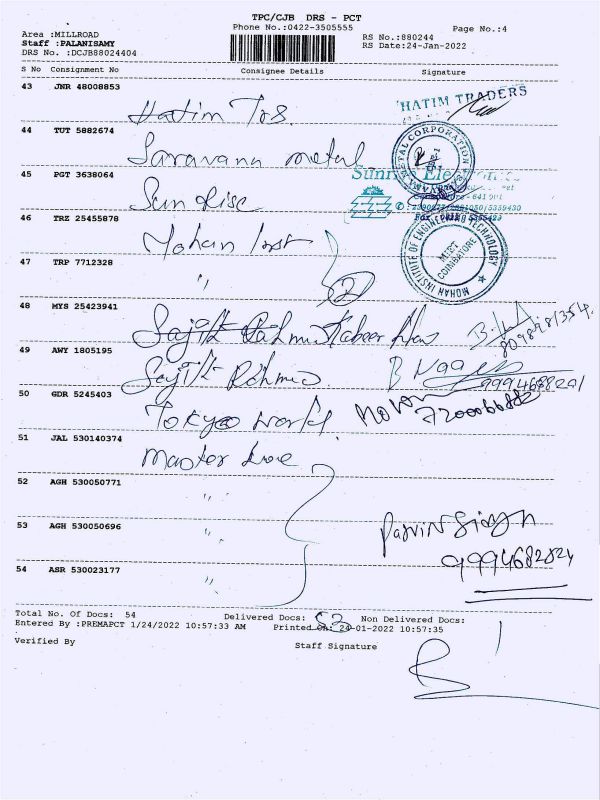 TPC/CJB DRS - PCT
Phone No.:0422-3505555
Page No.:4
Area :MILLROAD
RS No.:880244
Staff :PALANISAMY
RS Date:24-Jan-2022
DRS No. :DCJB88024404
S No Consignment No Consignee Details Signature
43 JNR 48008853
HATIM TRADERS
Hatim Trs.
44 TUT 5882674
METAL CORPORATION
Saravana metal
45 PGT 3638064
Sunrise Electronics
Sun Rise
46 TRZ 25455878
MOHAN INSTITUTE OF ENGINEERING TECHNOLOGY
MIET
COIMBATORE
Mohan Inst
47 TRP 7712328
"
2
48 MYS 25423941
49 AWY 1805195
9994688201
50 GDR 5245403
Tokyo world.
51 JAL 530140374
Master
52 AGH 530050771
"
53 AGH 530050696
"
9994682824
54 ASR 530023177
"
Total No. Of Docs: 54 Delivered Docs: 53 Non Delivered Docs:
Entered By :PREMAPCT 1/24/2022 10:57:33 AM Printed On: 24-01-2022 10:57:35
Verified By Staff Signature